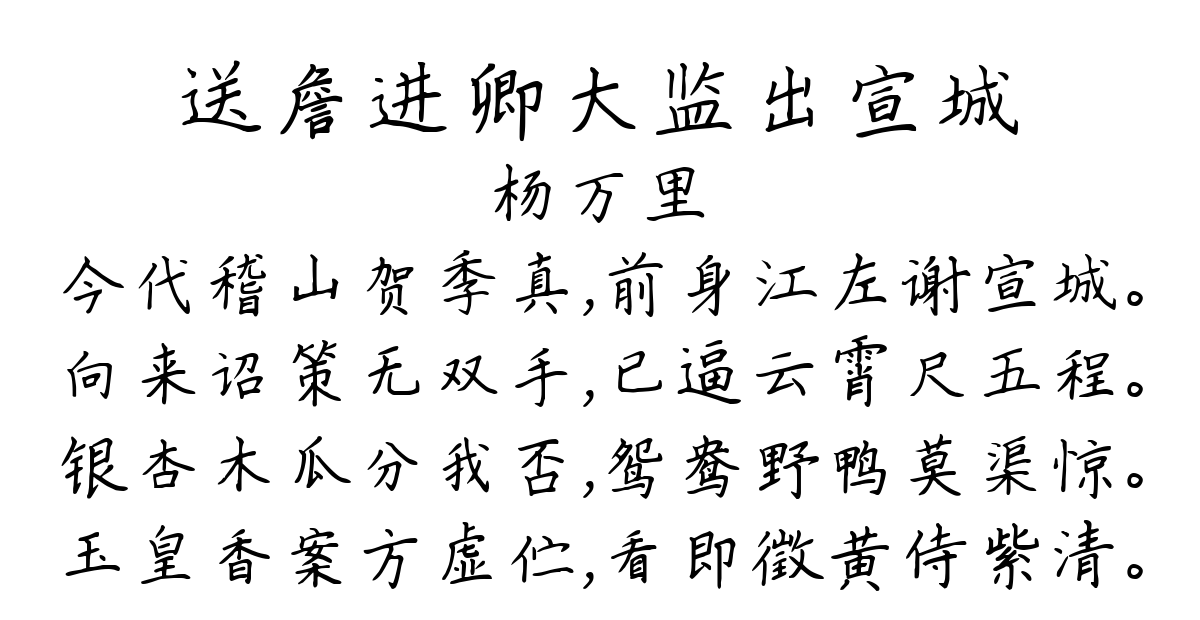 送詹进卿大监出宣城
杨万里
今代稽山贺季真,前身江左谢宣城。
向来诏策无双手,已逼云霄尺五程。
银杏木瓜分我否,鸳鸯野鸭莫渠惊。
玉皇香案方虚伫,看即徵黄侍紫清。